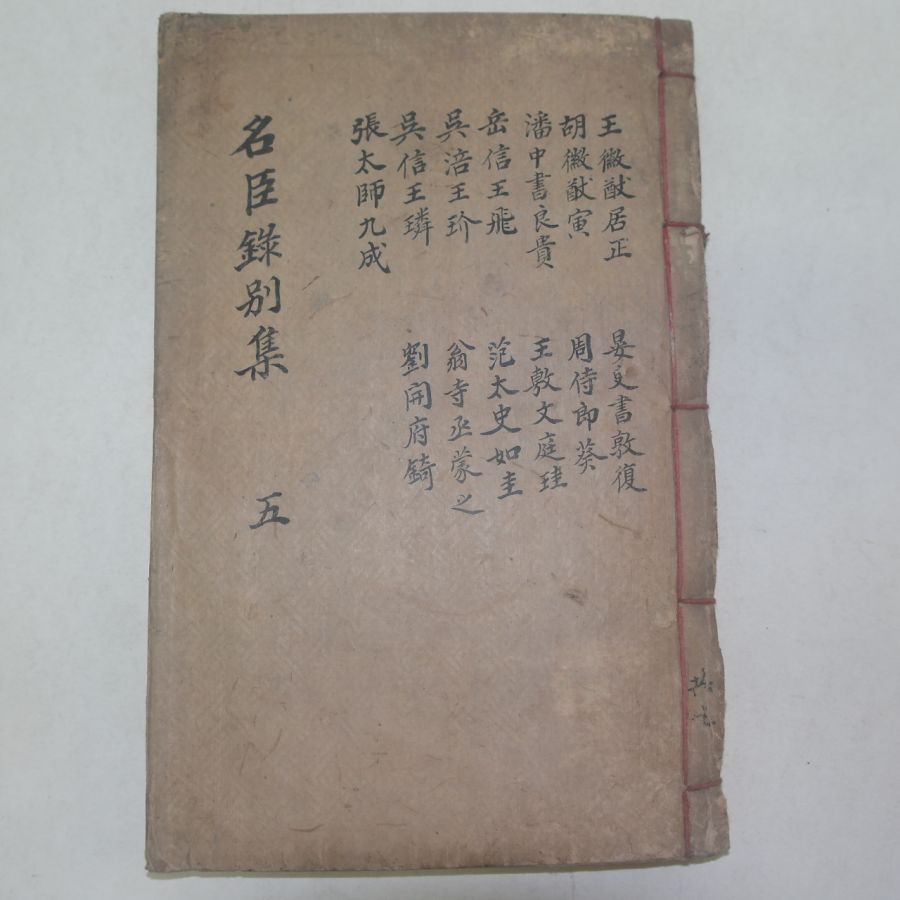 王徽猷居正
胡徽猷寅
潘中書良貴
岳信王飛
吳涪王玠
吳信王璘
張太師九成
晏尚書敦復
周侍郎葵
王敷文庭珪
范太史如圭
翁寺丞蒙之
劉開府錡
名臣錄別集 五